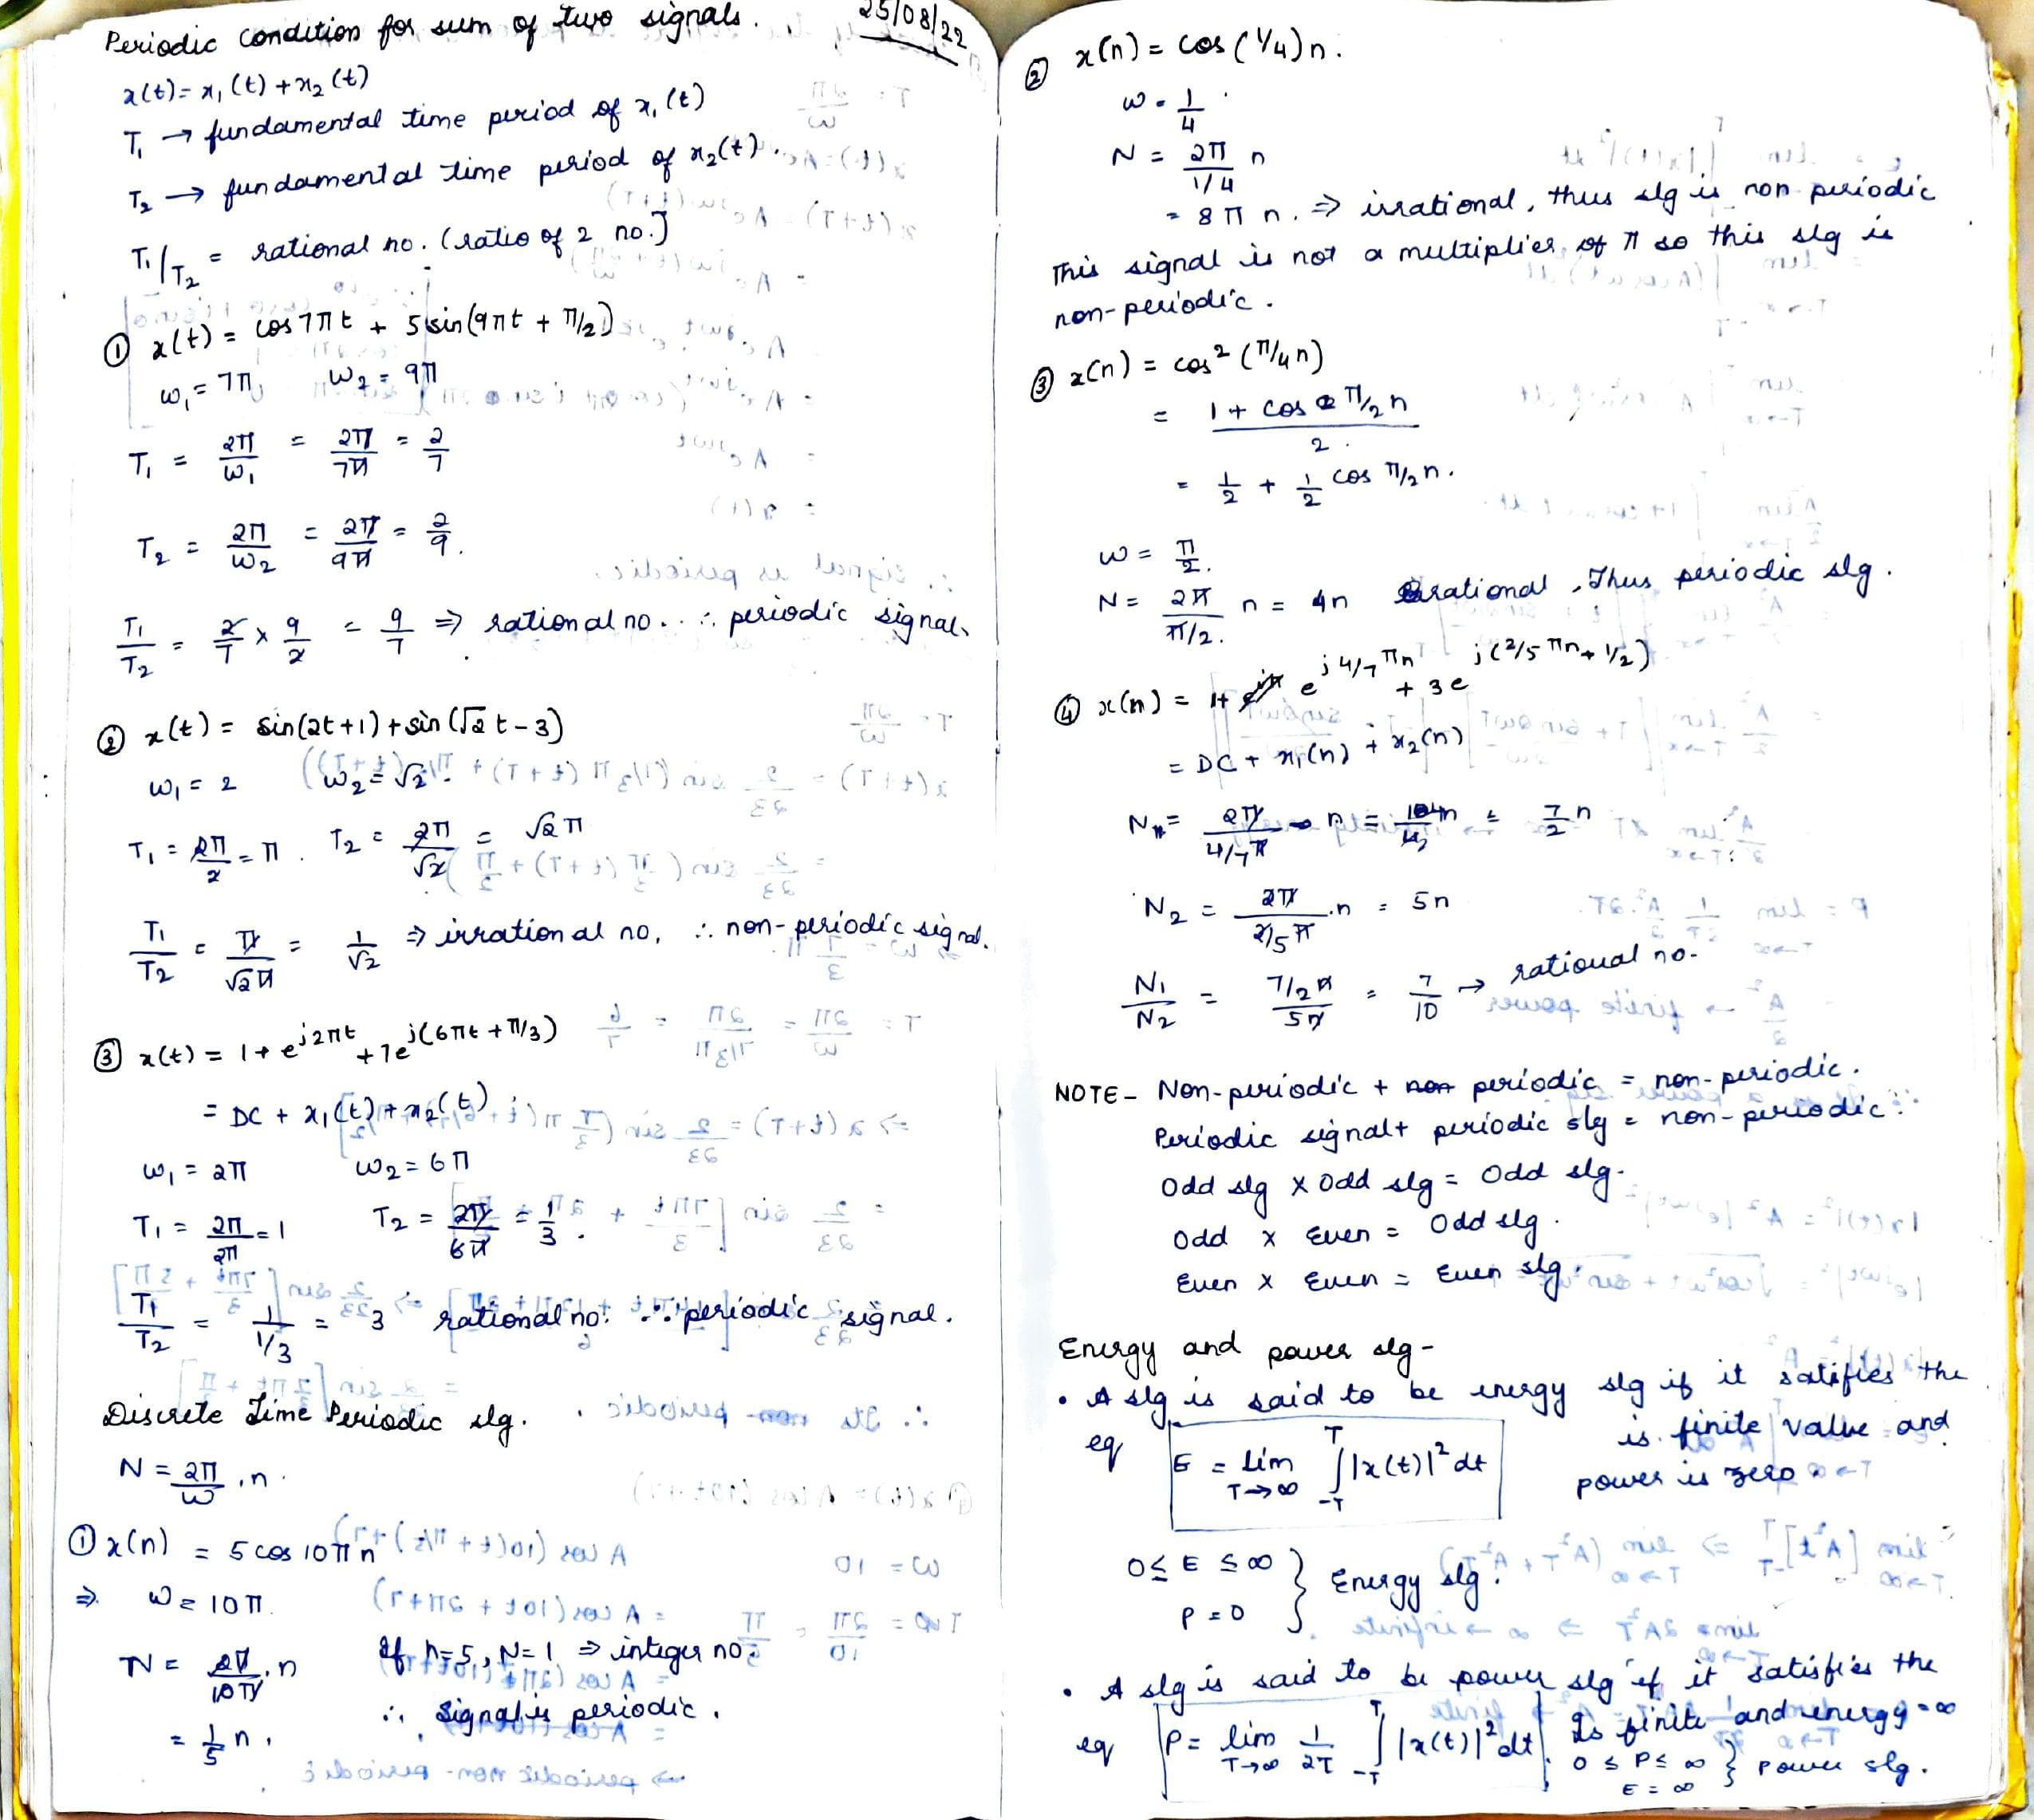 Periodic condition for sum of two signals. 25/08/22
x(t) = x₁(t) + x₂(t)
T₁ → fundamental time period of x₁(t)
T₂ → fundamental time period of x₂(t).
T₁/T₂ = rational no. (ratio of 2 no.]
① x(t) = cos 7πt + 5 sin(9πt + π/2)
ω₁ = 7π, ω₂ = 9π
T₁ = 2π/ω₁ = 2π/7π = 2/7
T₂ = 2π/ω₂ = 2π/9π = 2/9.
T₁/T₂ = 2/7 × 9/2 = 9/7 ⇒ rational no. ∴ periodic signal.
② x(t) = sin(2t+1) + sin(√2 t - 3)
ω₁ = 2 ω₂ = √2.
T₁ = 2π/2 = π. T₂ = 2π/√2 = √2 π
T₁/T₂ = π/√2π = 1/√2 ⇒ irrational no, ∴ non-periodic signal.
③ x(t) = 1 + e^j2πt + 7e^j(6πt + π/3)
= DC + x₁(t) + x₂(t)
ω₁ = 2π ω₂ = 6π
T₁ = 2π/2π = 1 T₂ = 2π/6π = 1/3.
T₁/T₂ = 1/1/3 = 3 rational no. ∴ periodic signal.
Discrete Time Periodic slg.
N = 2π/ω . n.
① x(n) = 5 cos 10πn
⇒ ω = 10π.
N = 2π/10π . n If n=5, N=1 ⇒ integer no.
= 1/5 n. ∴ signal is periodic.
② x(n) = cos(1/4)n.
ω = 1/4
N = 2π/1/4 n
= 8πn. ⇒ irrational, thus slg is non periodic
This signal is not a multiplier of π so this slg is
non-periodic.
③ x(n) = cos² (π/4 n)
= 1 + cos π/2 n / 2.
= 1/2 + 1/2 cos π/2 n.
ω = π/2.
N = 2π/π/2. n = 4n rational, Thus periodic slg.
④ x(n) = 1 + e^j4/7πn + 3e^j(2/5πn + 1/2)
= DC + x₁(n) + x₂(n)
N = 2π/4/7π n = 14n/4 = 7/2 n
N₂ = 2π/2/5π .n = 5n
N₁/N₂ = 7/2n/5n = 7/10 → rational no.
NOTE - Non-periodic + periodic = non-periodic.
Periodic signal + periodic slg = non-periodic.
Odd slg × Odd slg = Odd slg.
Odd × Even = Odd slg.
Even × Even = Even slg.
Energy and power slg -
• A slg is said to be energy slg if it satisfies the
eq E = lim T→∞ ∫_-T^T |x(t)|² dt is finite value and
power is zero
0 ≤ E ≤ ∞
P = 0 } Energy slg.
• A slg is said to be power slg if it satisfies the
eq P = lim T→∞ 1/2T ∫_-T^T |x(t)|² dt. Is finite and energy = ∞
0 ≤ P ≤ ∞
E = ∞ } power slg.